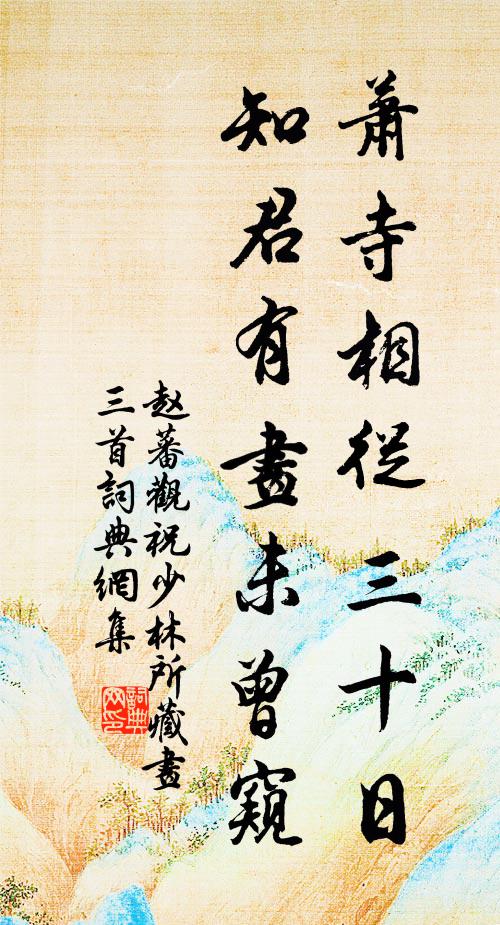 蕭寺相從三十日
知君有畫未曾窺
赵蕃觀祝少林所藏畫
三首詞典網集
詞典
网印